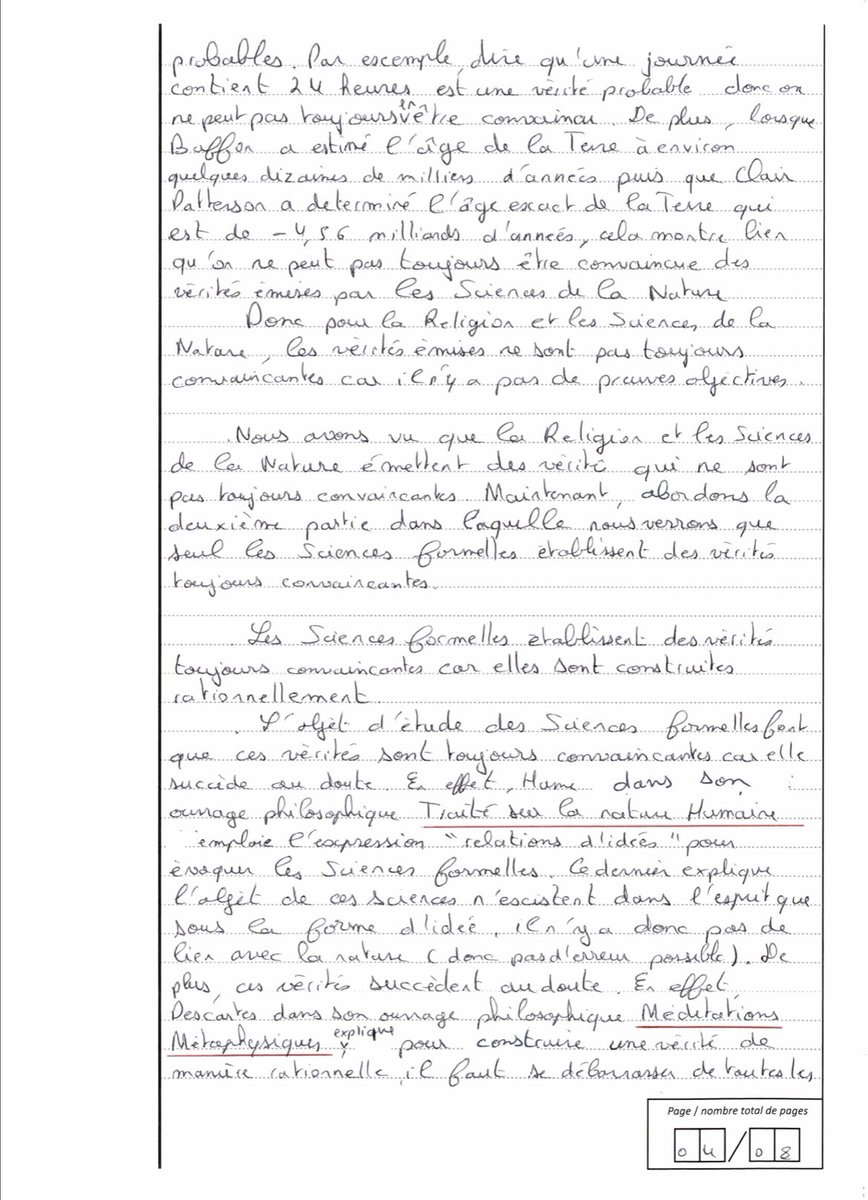 probables. Par escemple, dire qu'une journée
contient 24 heures est une vèrité probable donc on
ne peut pas toujours en être convaincu. De plus, lorsque
Buffon a estimé l'âge de la Terre à environ
quelques dizaines de milliers d'années puis que Clair
Patterson a determiné l'âge escact de la Terre qui
est de -4,56 milliards d'années, cela montre bien
qu'on ne peut pas toujours être convaincue des
vèrités émises par les Sciences de la Nature
Donc pour la Religion et les Sciences de la
Nature, les vèrités émises ne sont pas toujours
convaincantes car il n'y a pas de preuves objectives.
Nous avons vu que la Religion et les Sciences
de la Nature émettent des vèrité qui ne sont
pas toujours convaincantes. Maintenant, abordons la
deuxième partie dans laquelle nous verrons que
seul les Sciences formelles ètablissent des vèrités
toujours convaincantes.
Les Sciences formelles ètablissent des vèrités
toujours convaincantes car elles sont construites
rationnellement.
L'objèt d'ètude des Sciences formelles font
que ces vèrités sont toujours convaincantes car elle
succède au doute. En effet, Hume dans son
ouvrage philosophique Traité sur la nature Humaine
emploie l'escpression "relations d'idées" pour
èvoquer les Sciences formelles. Ce dernier explique
l'objèt de ces sciences n'escistent dans l'esprit que
sous la forme d'idée, il n'y a donc pas de
lien avec la nature (donc pas d'erreur possible). De
plus, ces vèrités succèdent au doute. En effet,
Descartes dans son ouvrage philosophique Méditations
Mètaphysiques explique pour construire une vèrité de
manière rationnelle, il faut se débarrasser de toutes les
Page / nombre total de pages
04/08